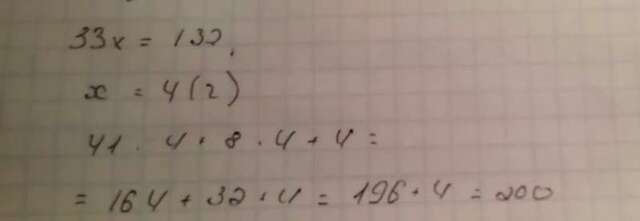 33x = 132.
x = 4 (2)
41 · 4 + 8 · 4 + 4 =
= 164 + 32 + 4 = 196 + 4 = 200